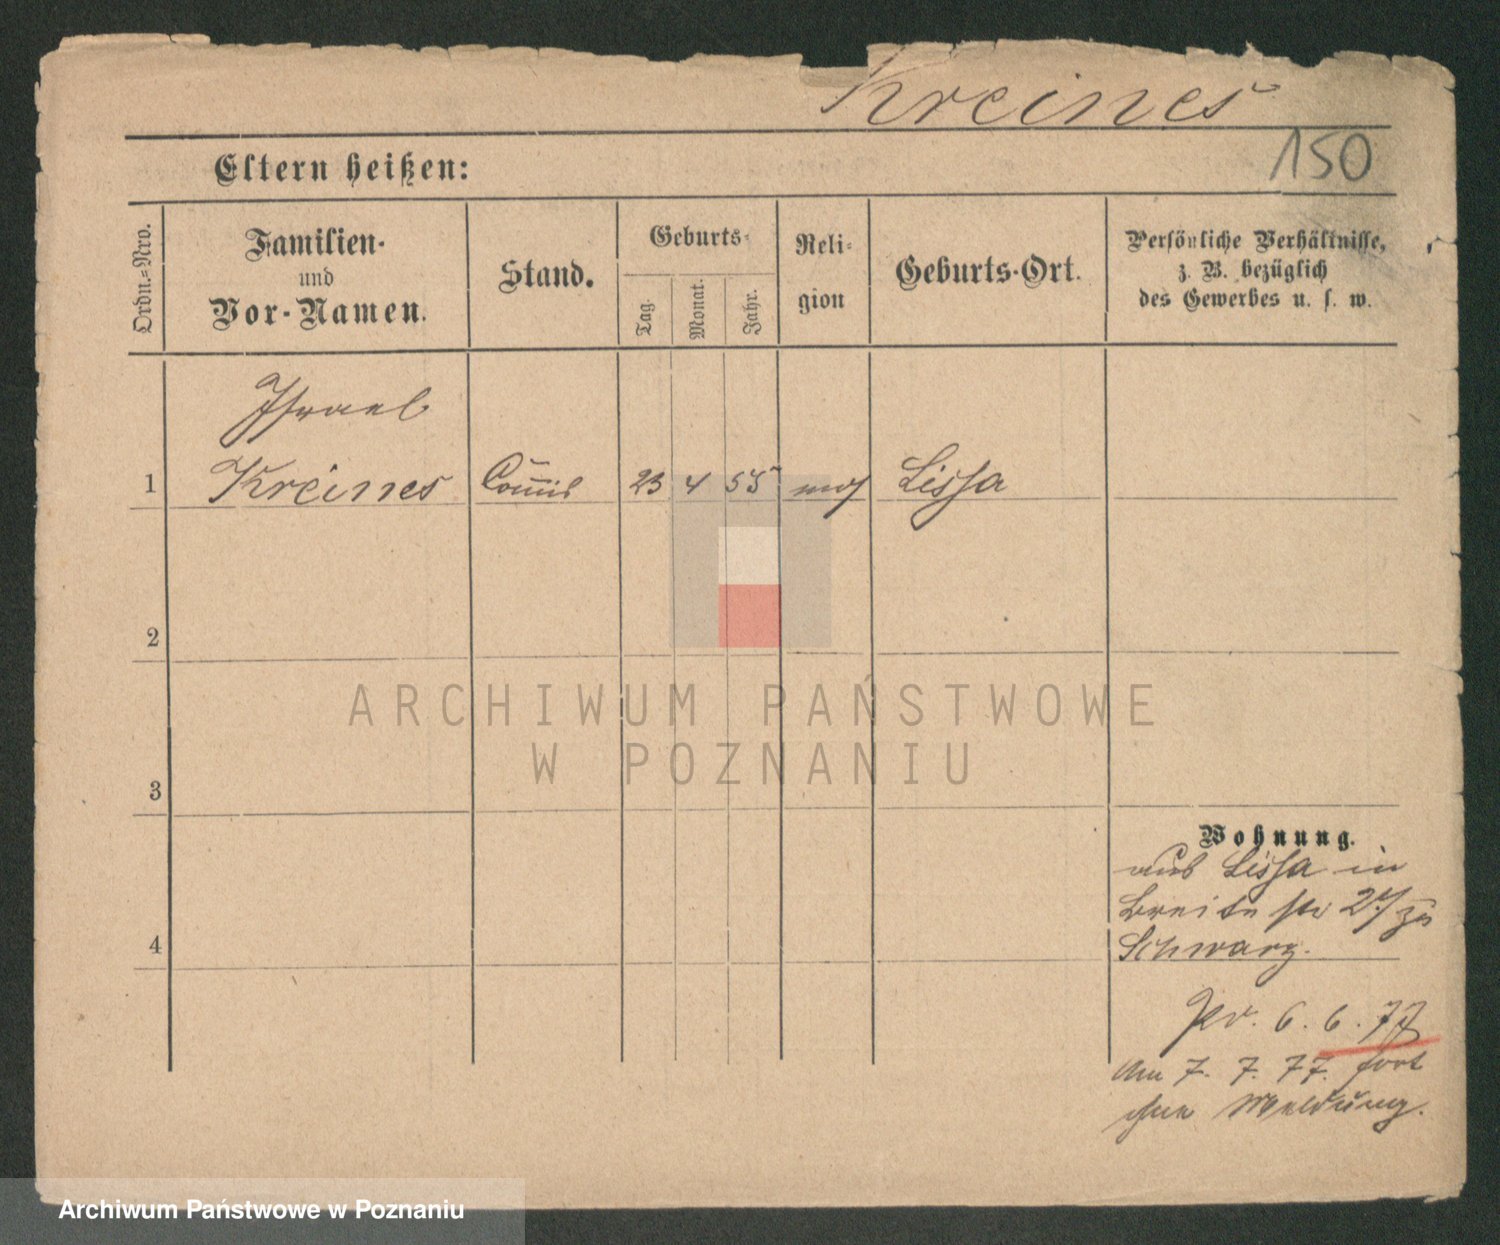 Kreines
150
Eltern heißen:
Ordn.=Nro.
Familien-
und
Vor-Namen.
Stand.
Geburts-
Tag.
Monat.
Jahr.
Reli-
gion
Geburts-Ort.
Persönliche Verhältnisse,
z. B. bezüglich
des Gewerbes u. s. w.
Israel
1 Kreines Commis 23 4 55 mos Lissa
2
3
4
ARCHIWUM PAŃSTWOWE
W POZNANIU
Wohnung.
aus Lissa in
Breite str 27 zu
Schwarz.
6. 6. 77
Am 7. 7. 77. fort
ohne Meldung.
Archiwum Państwowe w Poznaniu